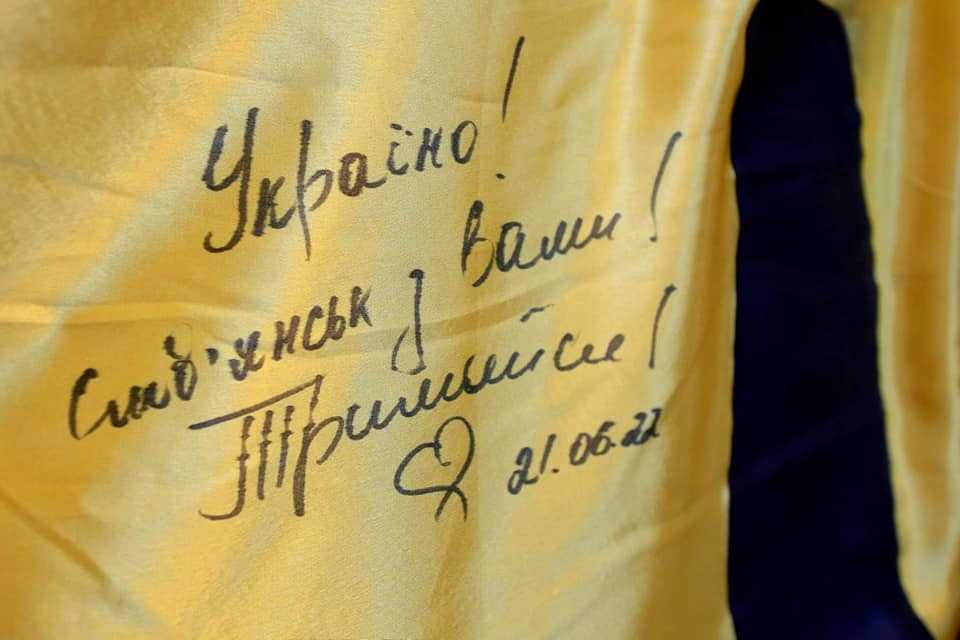 Україно!
Слов'янськ з Вами!
Тримайся!
21.06.22